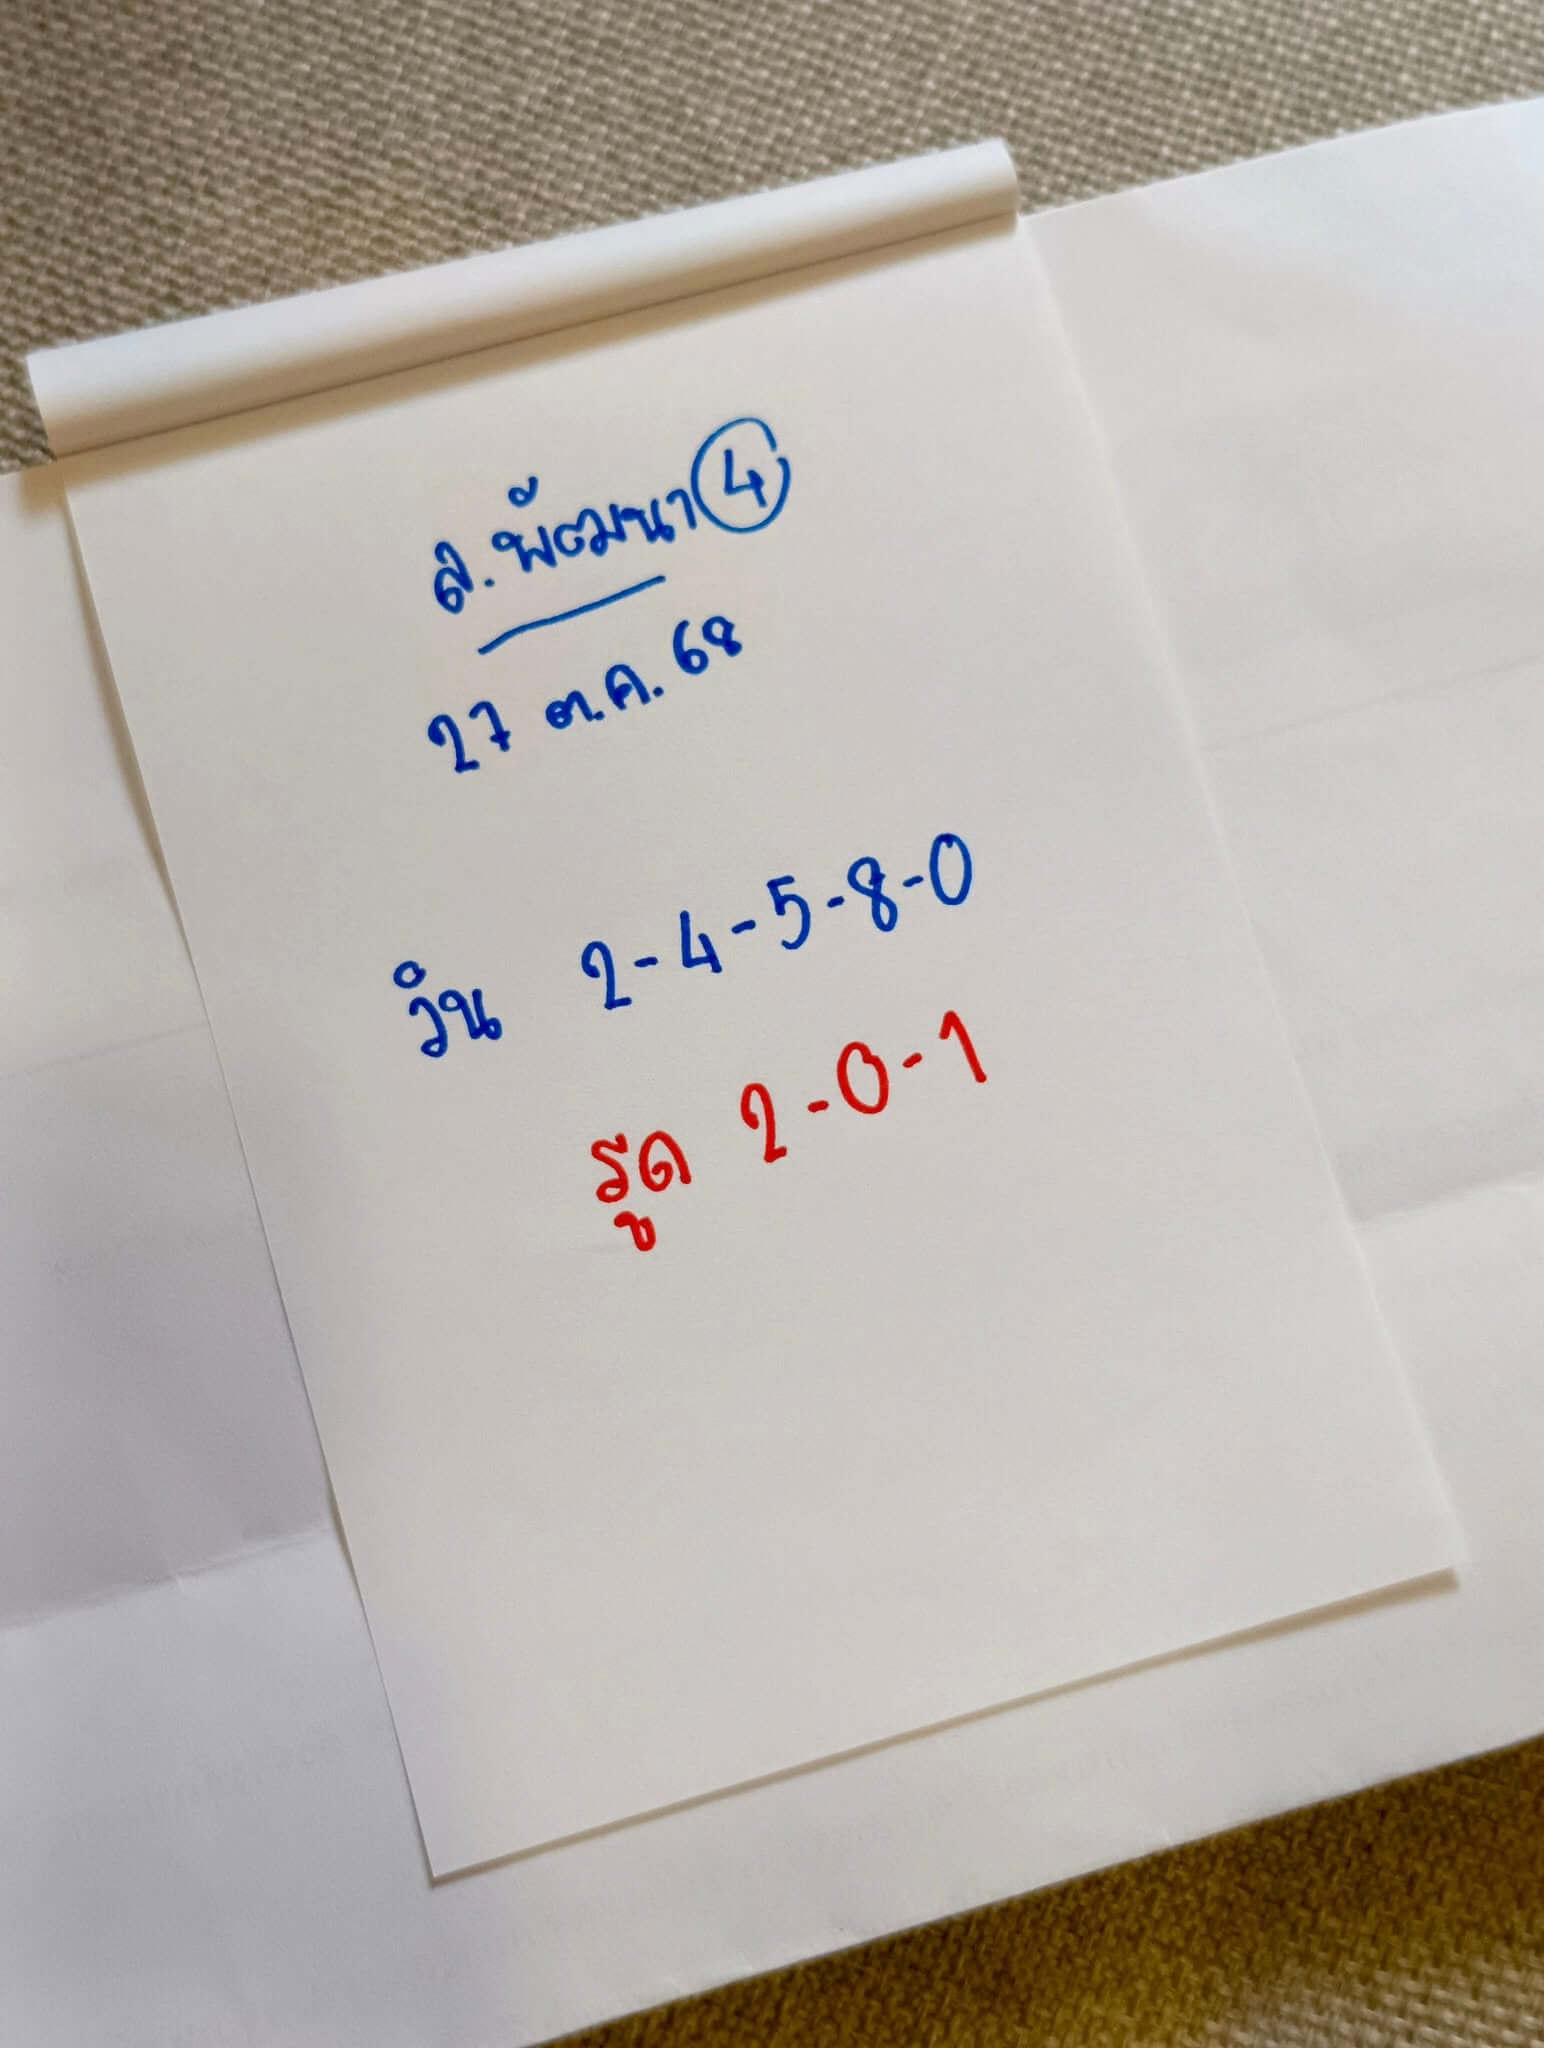 ส.พัฒนา 4
27 ต.ค. 68
วิน 2-4-5-8-0
รูด 2-0-1